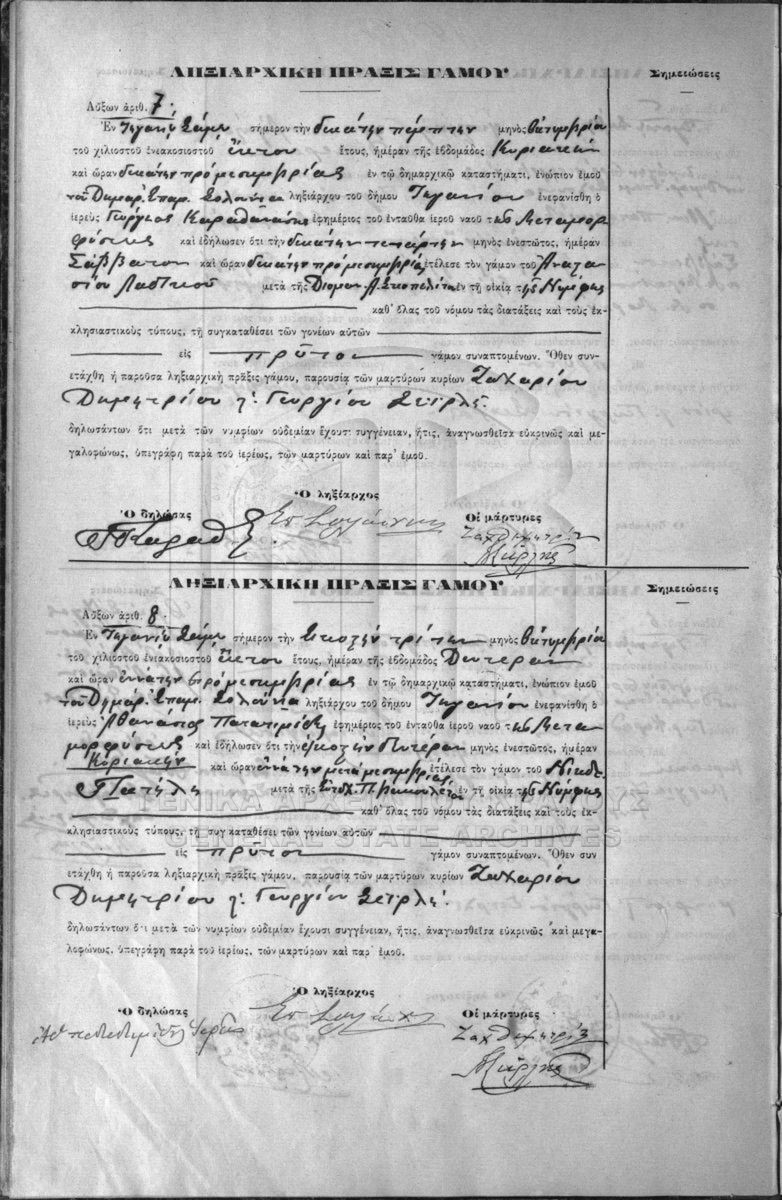 ΛΗΞΙΑΡΧΙΚΗ ΠΡΑΞΙΣ ΓΑΜΟΥ
Σημειώσεις
Αὔξων ἀριθ. 7.
Ἐν Τηγανίῳ Σάμου σήμερον τὴν δεκάτην πέμπτην μηνὸς Ὀκτωμβρίου
τοῦ χιλιοστοῦ ἐνεακοσιοστοῦ ἕκτου ἔτους, ἡμέραν τῆς ἑβδομάδος Κυριακὴν
καὶ ὥραν δεκάτην πρὸ μεσημβρίας ἐν τῷ δημαρχικῷ καταστήματι, ἐνώπιον ἐμοῦ
τοῦ Δημάρ. Ἐπαμ. ληξιάρχου τοῦ δήμου Τηγανίου ἐνεφανίσθη ὁ
ἱερεὺς Γεώργιος Καραθανάσης ἐφημέριος τοῦ ἐνταῦθα ἱεροῦ ναοῦ τῆς Μεταμορ
φώσεως καὶ ἐδήλωσεν ὅτι τὴν δεκάτην τετάρτην μηνὸς ἐνεστῶτος, ἡμέραν
Σάββατον καὶ ὥραν δεκάτην πρὸ μεσημβρίας ἐτέλεσε τὸν γάμον τοῦ Ἀναστα
σίου μετὰ τῆς Α. Σκοπελίτου ἐν τῇ οἰκίᾳ τῆς Νύμφης
καθ' ὅλας τοῦ νόμου τὰς διατάξεις καὶ τοὺς ἐκ-
κλησιαστικοὺς τύπους, τῇ συγκαταθέσει τῶν γονέων αὐτῶν
εἰς πρῶτον γάμον συναπτομένων. Ὅθεν συν-
ετάχθη ἡ παροῦσα ληξιαρχικὴ πρᾶξις γάμου, παρουσίᾳ τῶν μαρτύρων κυρίων Ζαχαρίου
Δημητρίου κ: Γεωργίου
δηλωσάντων ὅτι μετὰ τῶν νυμφίων οὐδεμίαν ἔχουσι συγγένειαν, ἥτις, ἀναγνωσθεῖσα εὐκρινῶς καὶ με-
γαλοφώνως, ὑπεγράφη παρὰ τοῦ ἱερέως, τῶν μαρτύρων καὶ παρ' ἐμοῦ.
Ὁ ληξίαρχος
Ὁ δηλώσας
Οἱ μάρτυρες
Ζαχ Δημητρίου
ΛΗΞΙΑΡΧΙΚΗ ΠΡΑΞΙΣ ΓΑΜΟΥ
Σημειώσεις
Αὔξων ἀριθ. 8.
Ἐν Τηγανίῳ Σάμου σήμερον τὴν εἰκοστὴν τρίτην μηνὸς Ὀκτωμβρίου
τοῦ χιλιοστοῦ ἐνιακοσιοστοῦ ἕκτου ἔτους, ἡμέραν τῆς ἑβδομάδος Δευτέραν
καὶ ὥραν ἐννάτην πρὸ μεσημβρίας ἐν τῷ δημαρχικῷ καταστήματι, ἐνώπιον ἐμοῦ
τοῦ Δημάρ. Ἐπαμ. ληξιάρχου τοῦ δήμου Τηγανίου ἐνεφανίσθη ὁ
ἱερεὺς Ἀθανάσιος ἐφημέριος τοῦ ἐνταῦθα ἱεροῦ ναοῦ τῆς Μετα
μορφώσεως καὶ ἐδήλωσεν ὅτι τὴν εἰκοστὴν δευτέραν μηνὸς ἐνεστῶτος, ἡμέραν
Κυριακὴν καὶ ὥραν ἐννάτην μετὰ μεσημβρίας ἐτέλεσε τὸν γάμον τοῦ
μετὰ τῆς ἐν τῇ οἰκίᾳ τῆς Νύμφης
καθ' ὅλας τοῦ νόμου τὰς διατάξεις καὶ τοὺς ἐκ-
κλησιαστικοὺς τύπους, τῇ συγκαταθέσει τῶν γονέων αὐτῶν
εἰς πρῶτον γάμον συναπτομένων. Ὅθεν συν
ετάχθη ἡ παροῦσα ληξιαρχικὴ πρᾶξις γάμου, παρουσίᾳ τῶν μαρτύρων κυρίων Ζαχαρίου
Δημητρίου κ: Γεωργίου
δηλωσάντων ὅτι μετὰ τῶν νυμφίων οὐδεμίαν ἔχουσι συγγένειαν, ἥτις, ἀναγνωσθεῖσα εὐκρινῶς καὶ μεγα-
λοφώνως, ὑπεγράφη παρὰ τοῦ ἱερέως, τῶν μαρτύρων καὶ παρ' ἐμοῦ.
Ὁ ληξίαρχος
Ὁ δηλώσας
Οἱ μάρτυρες
Ζαχ Δημητρίου
ΓΕΝΙΚΑ ΑΡΧΕΙΑ ΤΟΥ ΚΡΑΤΟΥΣ
GENERAL STATE ARCHIVES